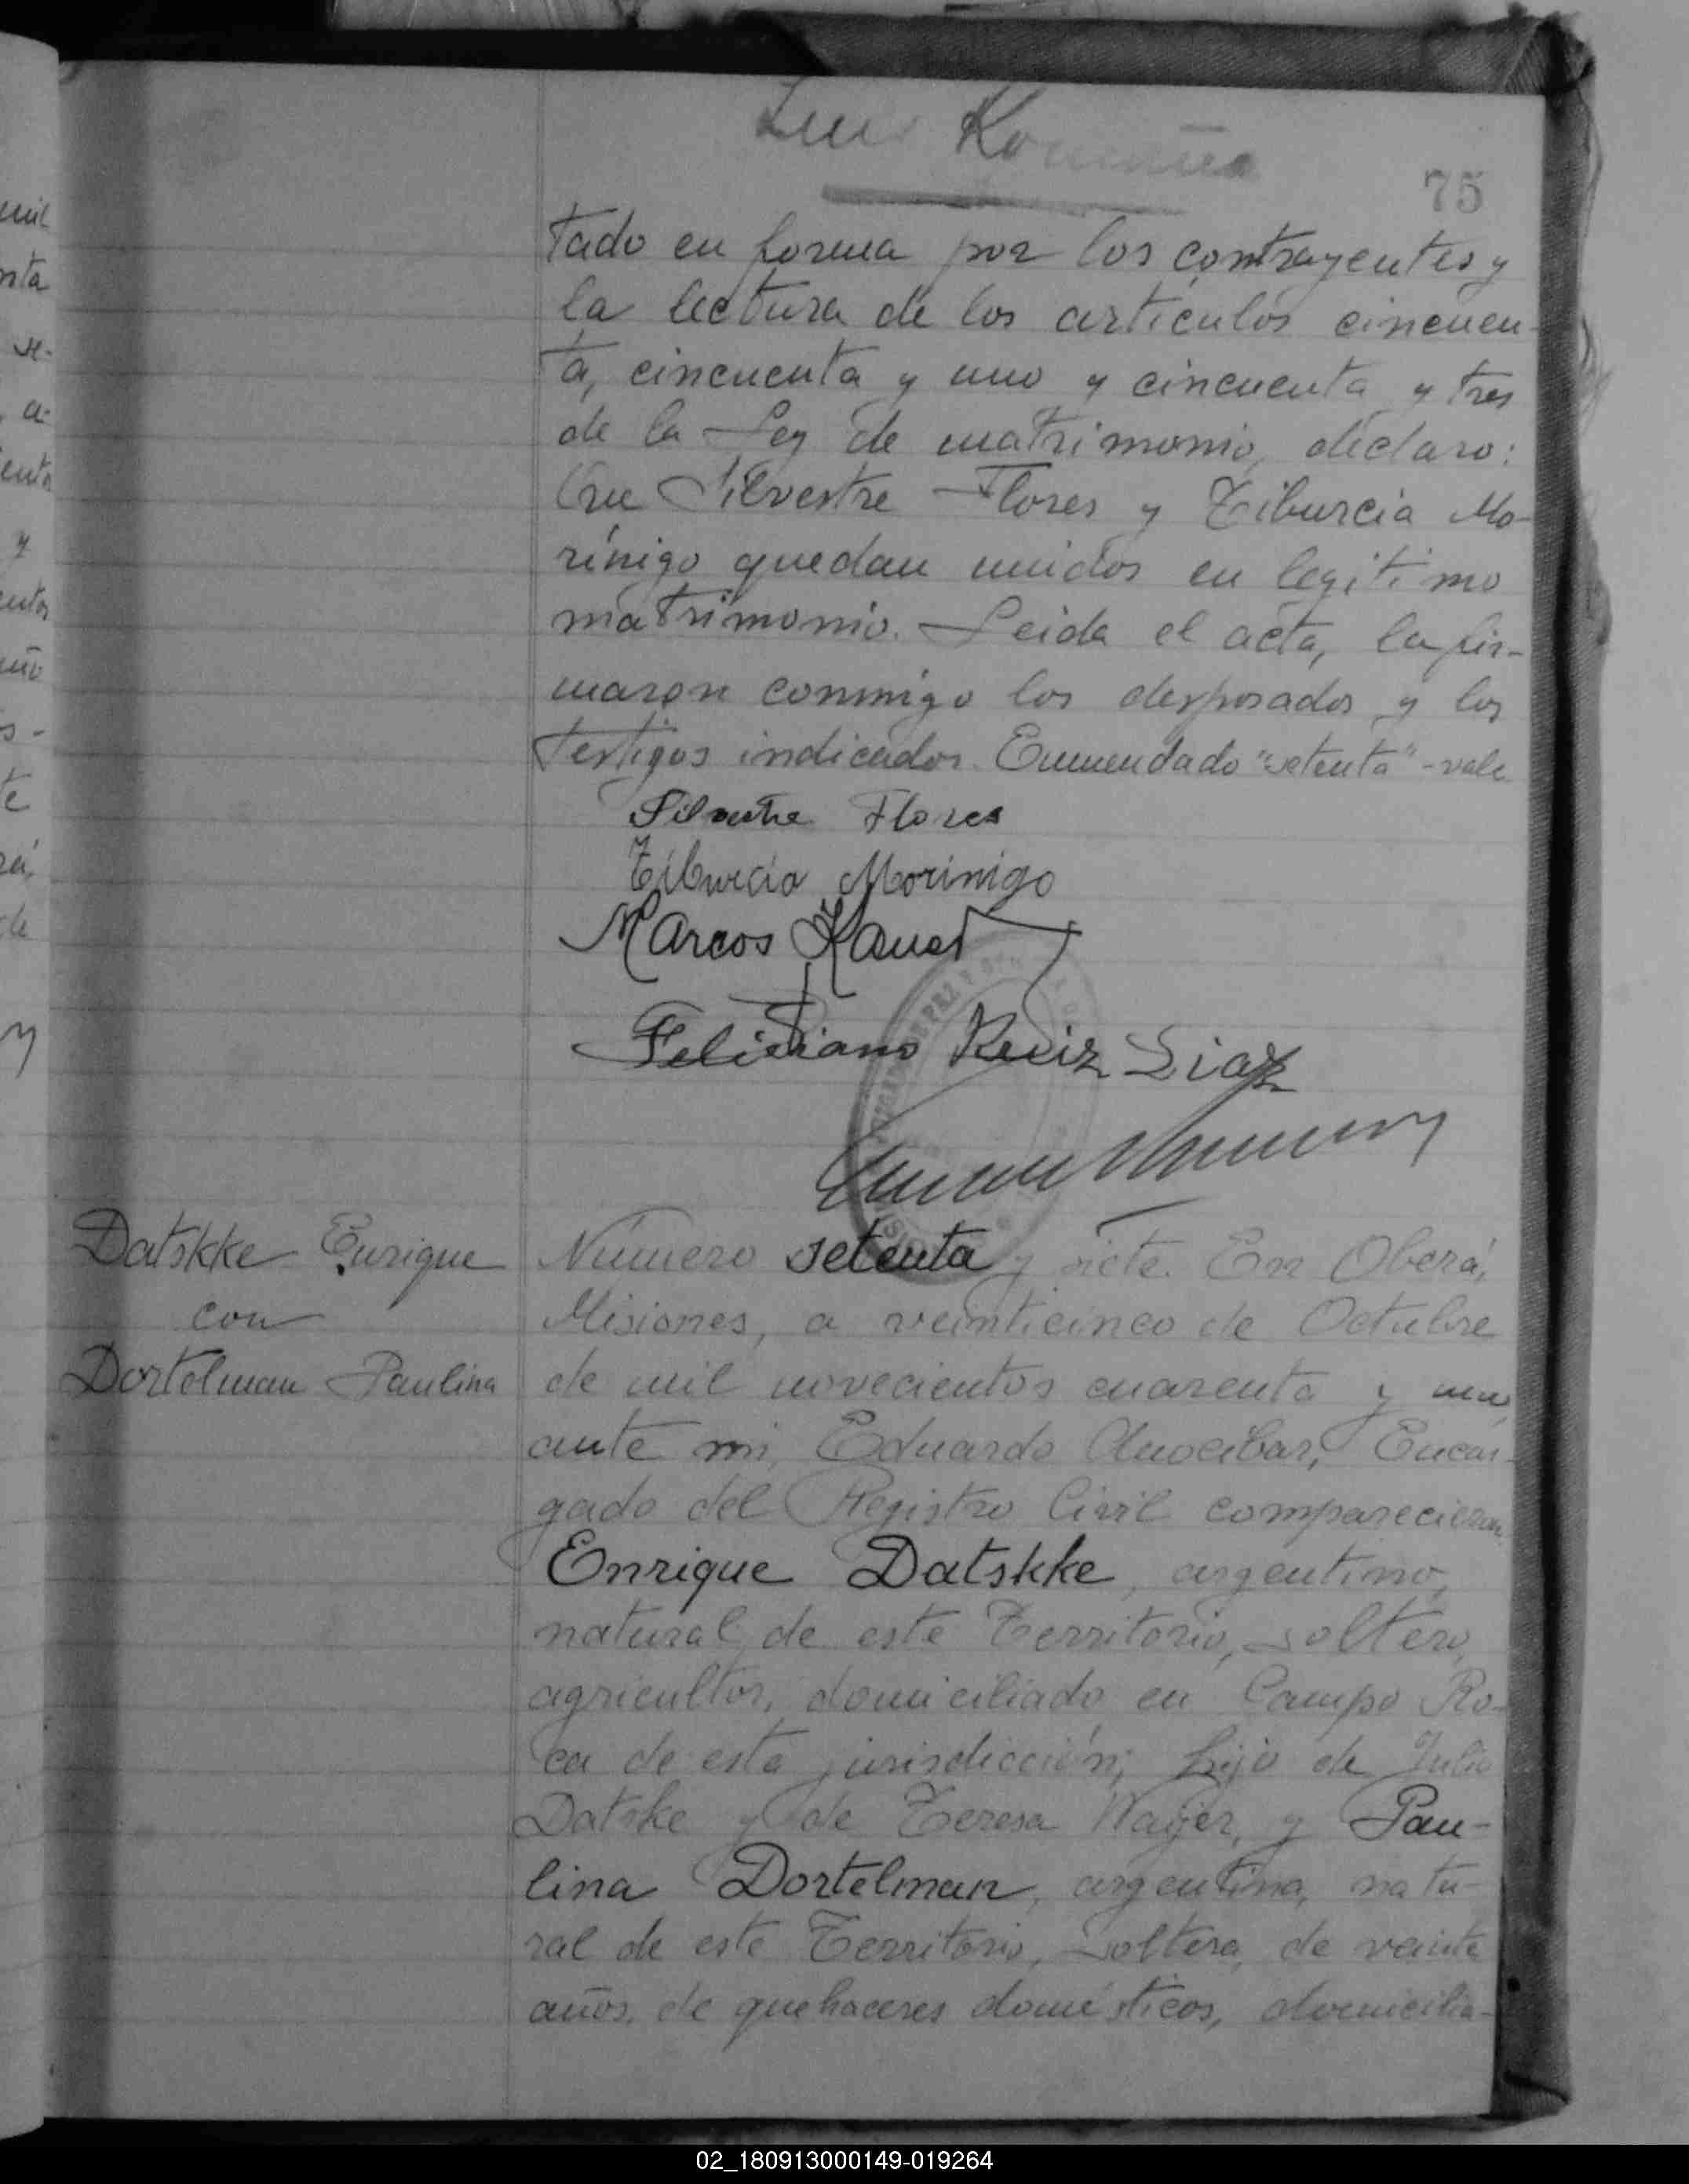 75
tado en forma por los contrayentes y
la lectura de los artículos cincuen-
ta, cincuenta y uno y cincuenta y tres
de la Ley de matrimonio, declaro:
Que Silvestre Flores y Tiburcia Mo-
rínigo quedan unidos en legitimo
matrimonio. Leida el acta, la fir-
maron conmigo los desposados y los
testigos indicados. Enmendado "setenta" - vale
Silvestre Flores
Tiburcia Morinigo
Marcos
Feliciano Ruiz Diaz
Datskke Enrique
con
Dortelman Paulina
Número setenta y siete. En Oberá,
Misiones, a veinticinco de Octubre
de mil novecientos cuarenta y uno,
ante mi, Eduardo Anocibar, Encar-
gado del Registro Civil comparecieron
Enrique Datskke, argentino,
natural de este Territorio, soltero,
agricultor, domiciliado en Campo Ro-
ca de esta jurisdicción; hijo de Julio
Datske y de Teresa Wayer, y Pau-
lina Dortelman, argentina, natu-
ral de este Territorio, soltera, de veinte
años, de quehaceres domésticos, domicilia-
02_180913000149-019264